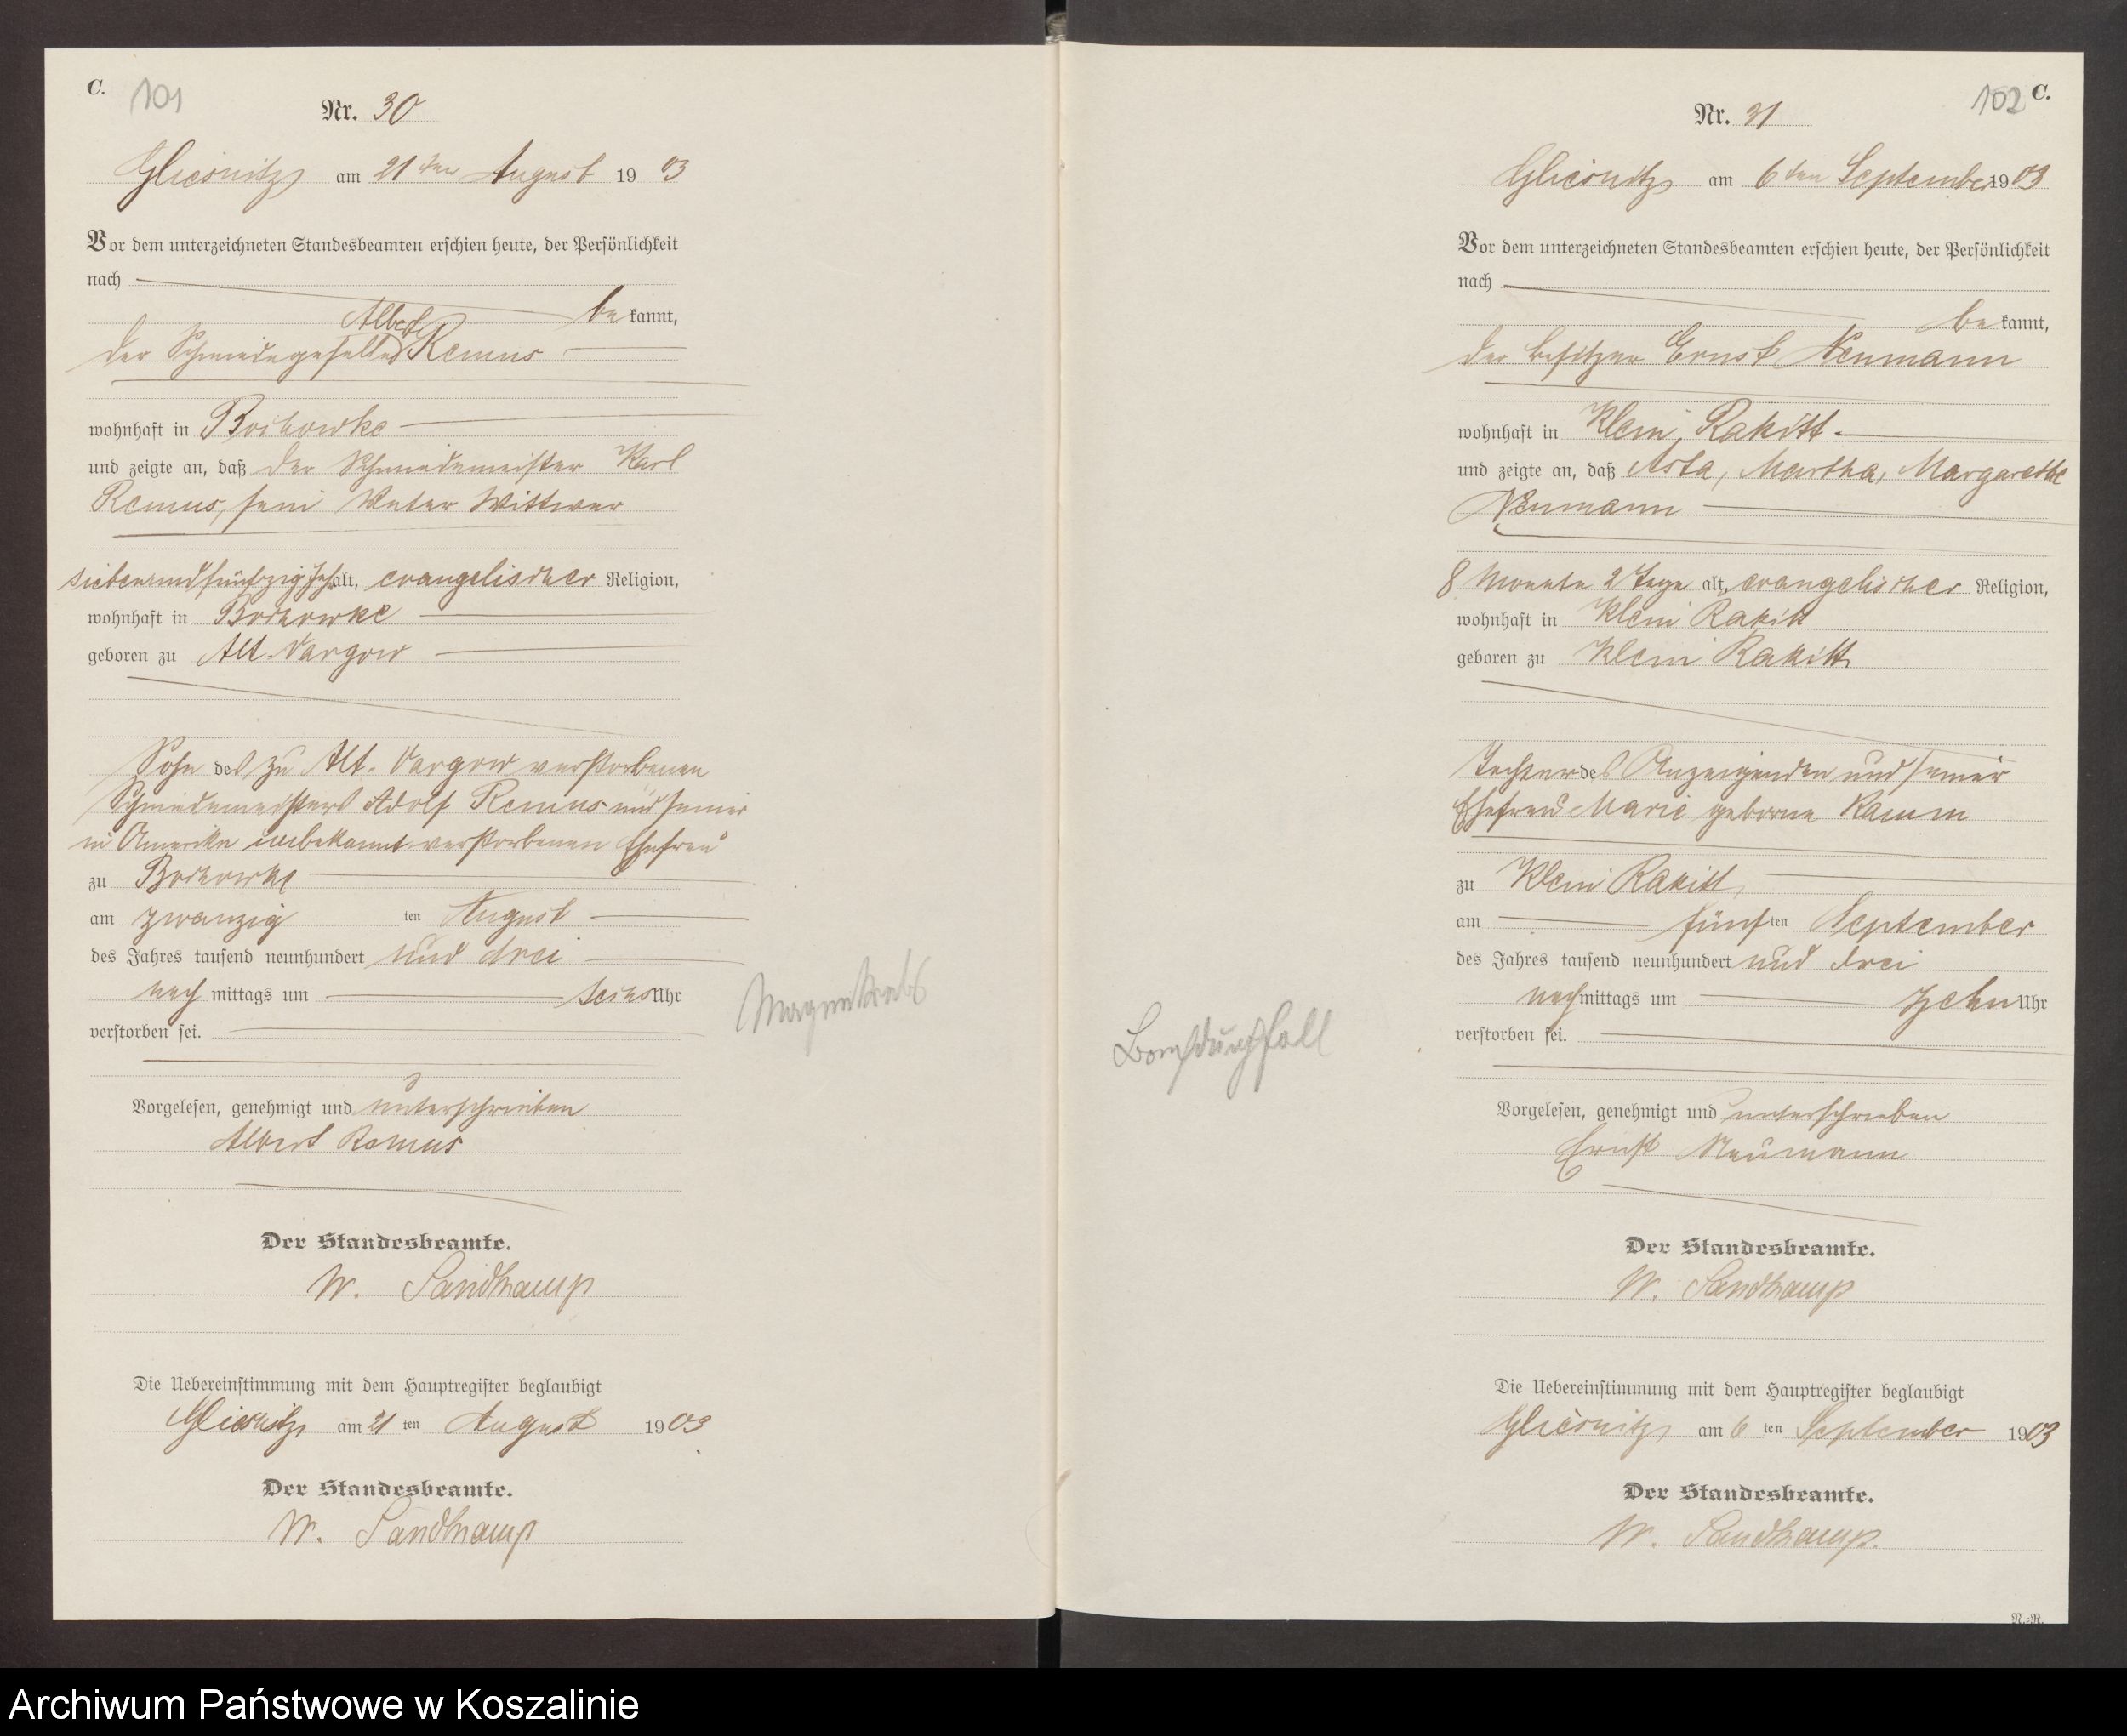 C. 101
Nr. 30
Gliesnitz am 21ten August 1903
Vor dem unterzeichneten Standesbeamten erschien heute, der Persönlichkeit
nach
be kannt,
Albert
der Schmiedegeselle Remus
wohnhaft in Bochowke
und zeigte an, daß der Schmiedemeister Karl
Remus, sein Vater Wittwer
siebenundfünfzig Jahr alt, evangelischer Religion,
wohnhaft in Bochowke
geboren zu Alt. Vargow
Sohn des zu Alt. Vargow verstorbenen
Schmiedemeisters Adolf Remus und seiner
in Amerika unbekannt verstorbenen Ehefrau
zu Bochowke
am zwanzig ten August
des Jahres tausend neunhundert und drei
nach mittags um sechs Uhr
verstorben sei.
Magenkrebs
Vorgelesen, genehmigt und unterschrieben
Albert Remus
Der Standesbeamte.
W. Sandkamp
Die Uebereinstimmung mit dem Hauptregister beglaubigt
Gliesnitz am 21 ten August 1903
Der Standesbeamte.
W. Sandkamp
102 C.
Nr. 31
Gliesnitz am 6ten September 1903
Vor dem unterzeichneten Standesbeamten erschien heute, der Persönlichkeit
nach
be kannt,
der Besitzer Ernst Neumann
wohnhaft in Klein Rakitt
und zeigte an, daß Asta, Martha, Margarethe
Neumann
8 Monate 2 Tage alt, evangelischer Religion,
wohnhaft in Klein Rakitt
geboren zu Klein Rakitt
Tochter des Anzeigenden und seiner
Ehefrau Marie geborne Ramm
zu Klein Rakitt
am fünf ten September
des Jahres tausend neunhundert und drei
nach mittags um zehn Uhr
verstorben sei.
Brechdurchfall
Vorgelesen, genehmigt und unterschrieben
Ernst Neumann
Der Standesbeamte.
W. Sandkamp
Die Uebereinstimmung mit dem Hauptregister beglaubigt
Gliesnitz am 6 ten September 1903
Der Standesbeamte.
W. Sandkamp.
R.-R.
Archiwum Państwowe w Koszalinie